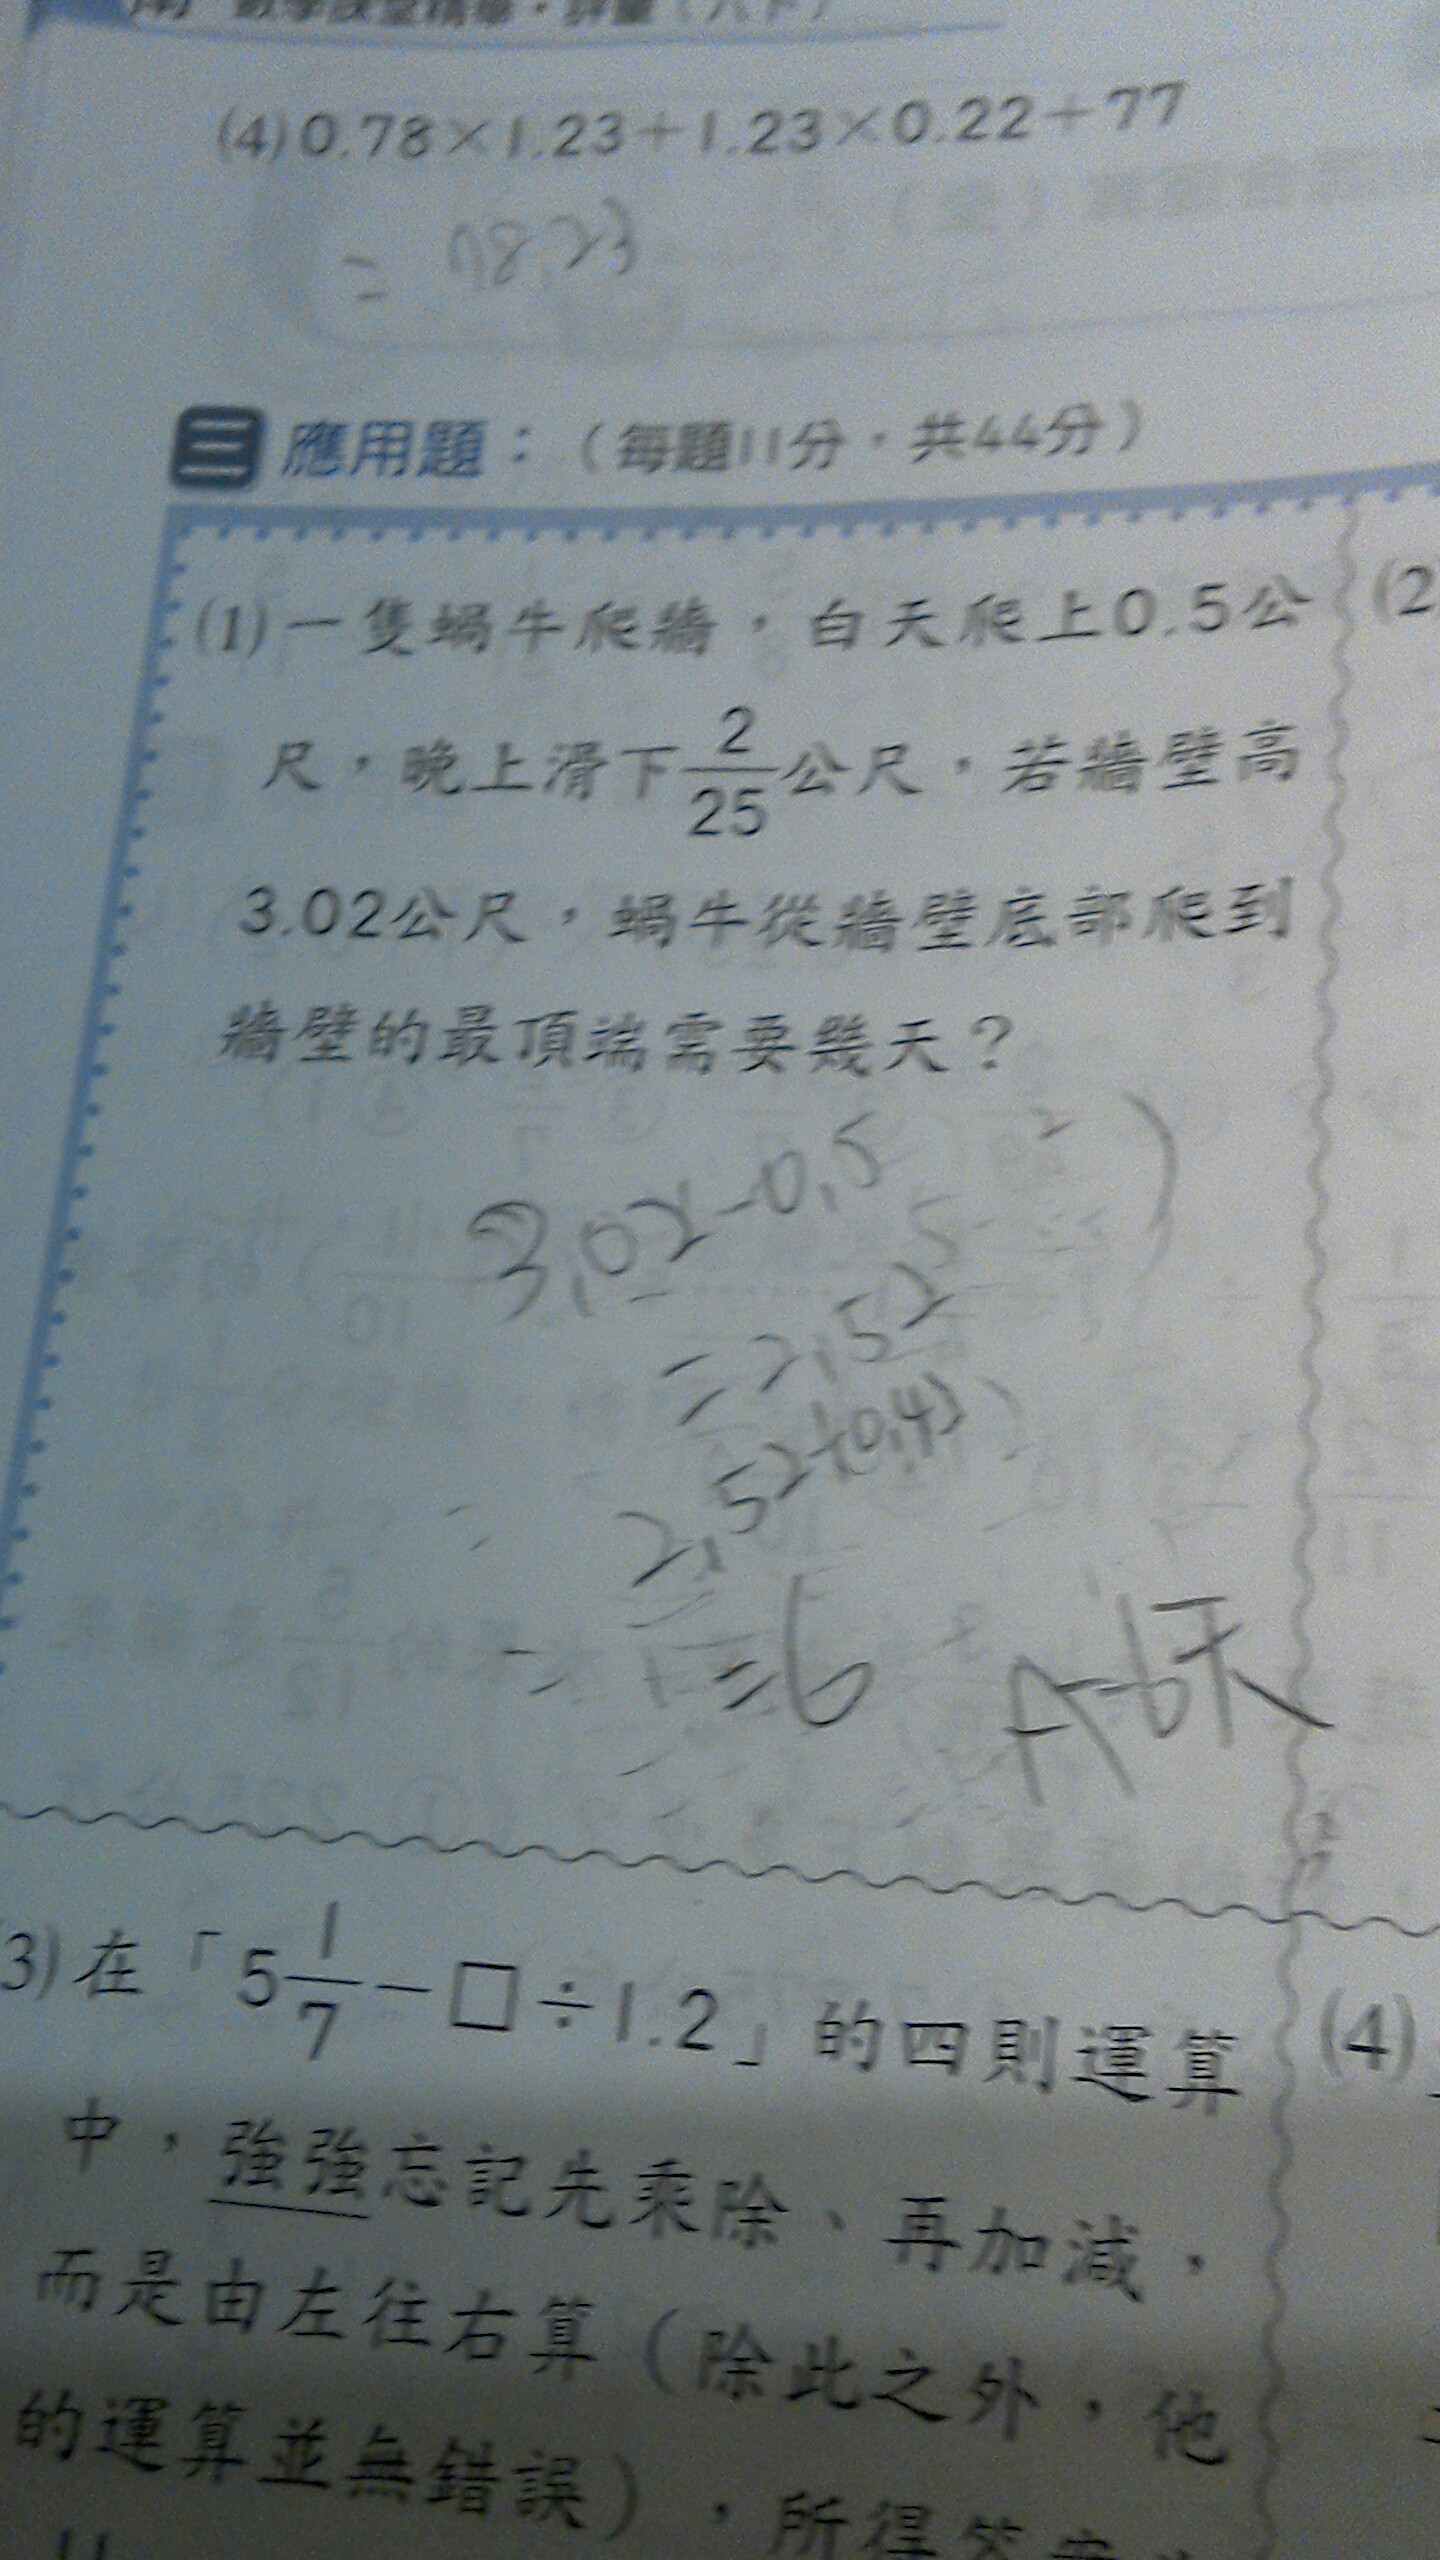 (4) 0.78×1.23+1.23×0.22+77
= 78.23
三 應用題：（每題11分，共44分）
(1) 一隻蝸牛爬牆，白天爬上0.5公
尺，晚上滑下2/25公尺，若牆壁高
3.02公尺，蝸牛從牆壁底部爬到
牆壁的最頂端需要幾天？
(2
3.02-0.5
=2.52
2.52÷0.42
=6
A=6天
3) 在「5 1/7－□÷1.2」的四則運算
中，強強忘記先乘除、再加減，
而是由左往右算（除此之外，他
的運算並無錯誤），所得答案
(4)